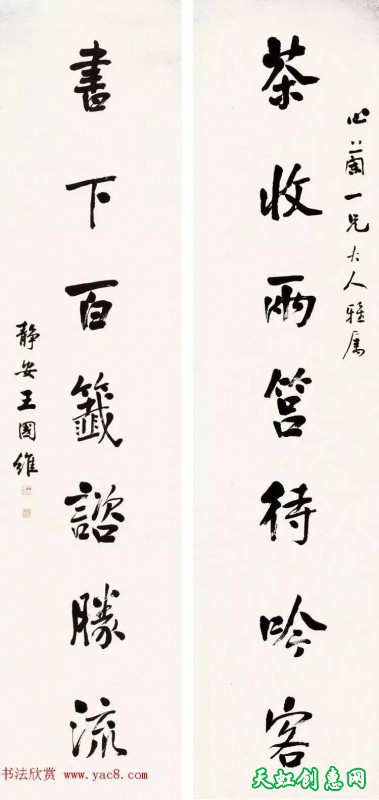 心蘭一兄大人雅属
茶收兩筥待吟客
書下百籤諮勝流
静安王國維
书法欣赏 www.yac8.com
天虹创意网